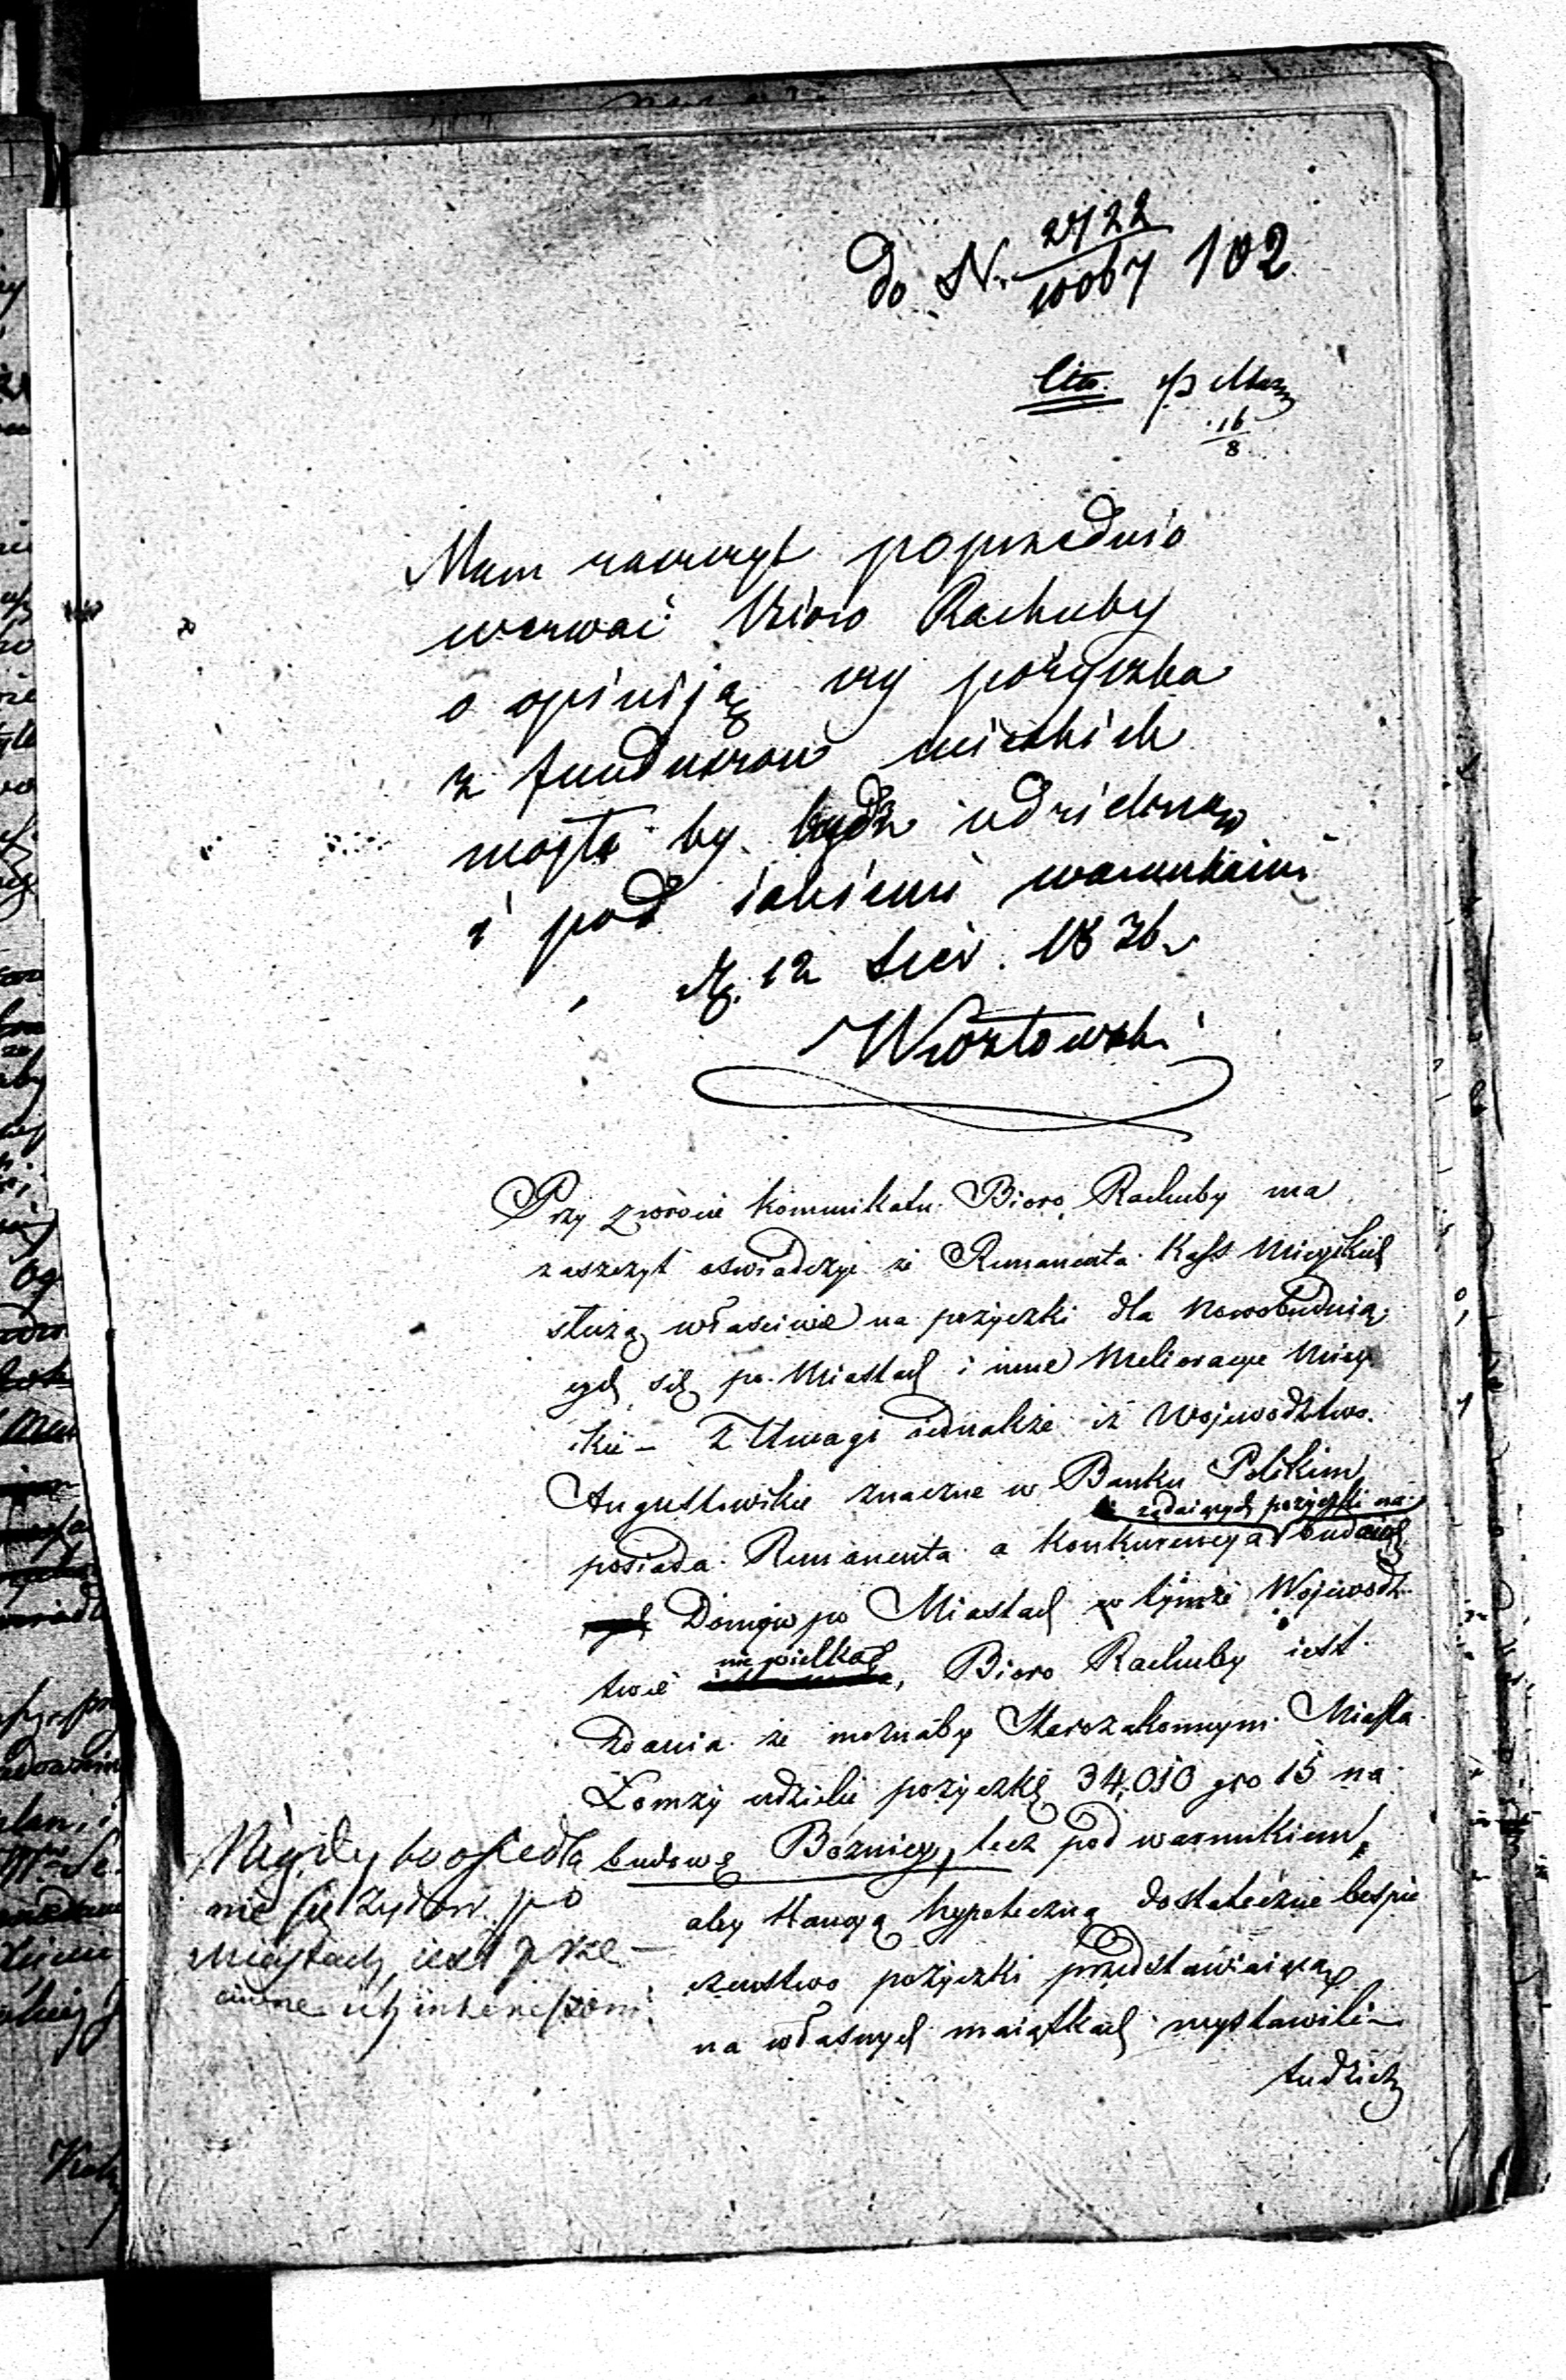 do N. 2722/10067 102
cito
16/8
Mam zaszczyt poprzednio
wezwać Biuro Rachuby
o opiniją czy pożyczka
z funduszów mieskich
mogła by bydź udzielona
i pod iakiemi warunkami
d. 12 Sier. 1836
Przy zwrocie kommunikatu Bióro Rachuby ma
zaszczyt oswiadczyć że Remanenta Kass Mieyskich
służą własciwie na pożyczki dla Nowobuduią-
cych się po Miastach i inne Melioracye Miey-
skie – Z Uwagi iednakże iż Wojewodztwo
Augustowskie znaczne w Banku Polskim
żądaiących pożyczki na
posiada Remanenta a konkurencya budowę
Domów po Miastach w tymże Wojewodz-
nie wielka
twie , Bioro Rachuby iest
zdania że możnaby Starozakonnym Miasta
Łomży udzielić pożyczkę 34,010 gro 15 na
budowę Bóżnicy, lecz pod warunkiem,
aby Kaucyą hypoteczną dostateczne bespie-
czenstwo pożyczki przedstawiaiącą
na własnych maiątkach wystawili –
tudzież
Nigdy bo osiedla
nie się Żydów po
Miastach iest prze-
ciwne ich interessom